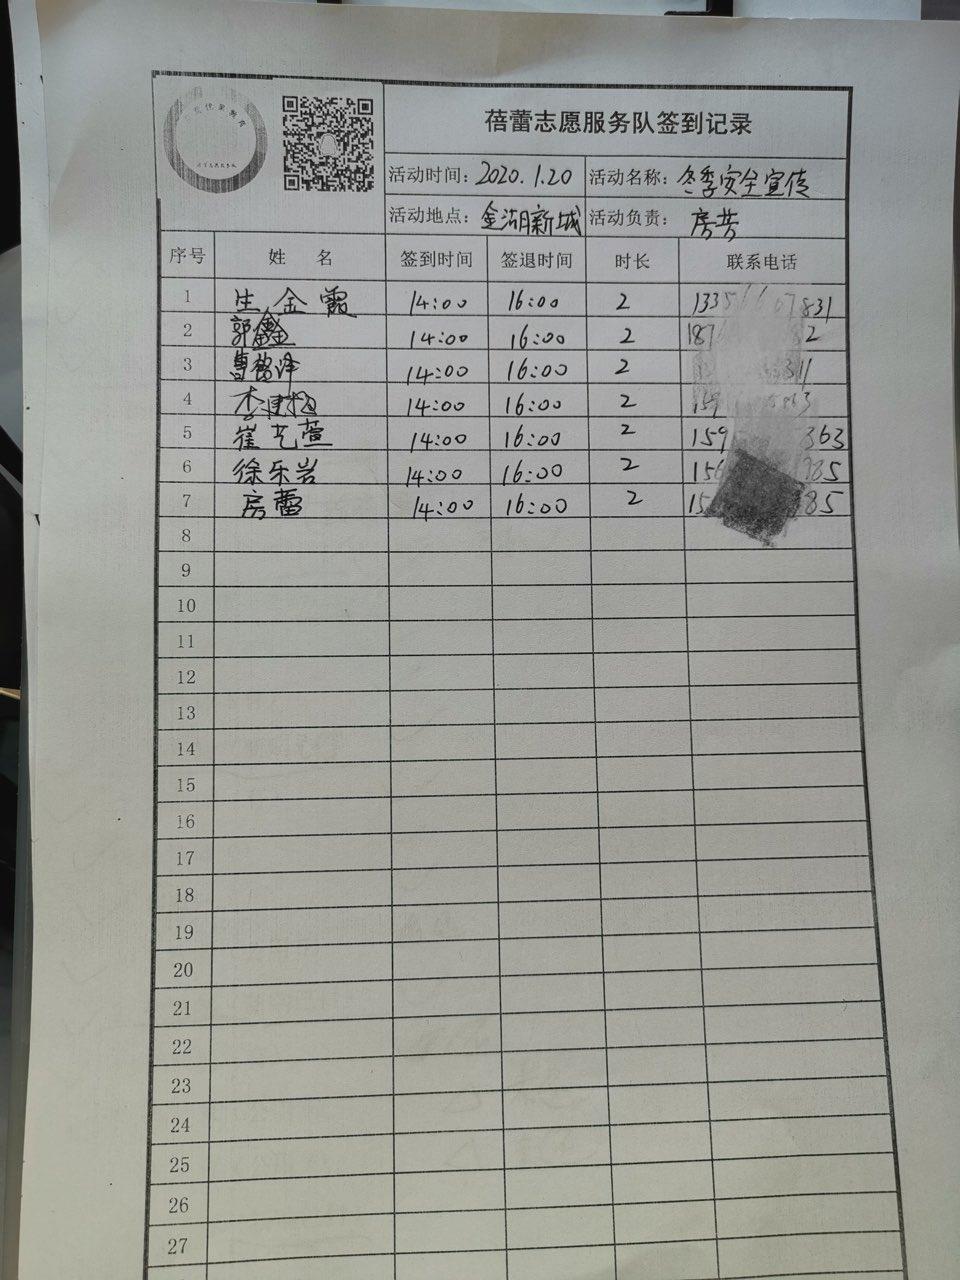 蓓蕾志愿服务队签到记录
活动时间：2020.1.20 活动名称：冬季安全宣传
活动地点：金湖新城 活动负责：房芳
序号 姓 名 签到时间 签退时间 时长 联系电话
1 生金霞 14:00 16:00 2 831
2 郭鑫 14:00 16:00 2 187 2
3 曹铭泽 14:00 16:00 2 311
4 14:00 16:00 2 159
5 崔艺萱 14:00 16:00 2 159 363
6 徐乐岩 14:00 16:00 2 156 35
7 房蕾 14:00 16:00 2 15 85
8
9
10
11
12
13
14
15
16
17
18
19
20
21
22
23
24
25
26
27